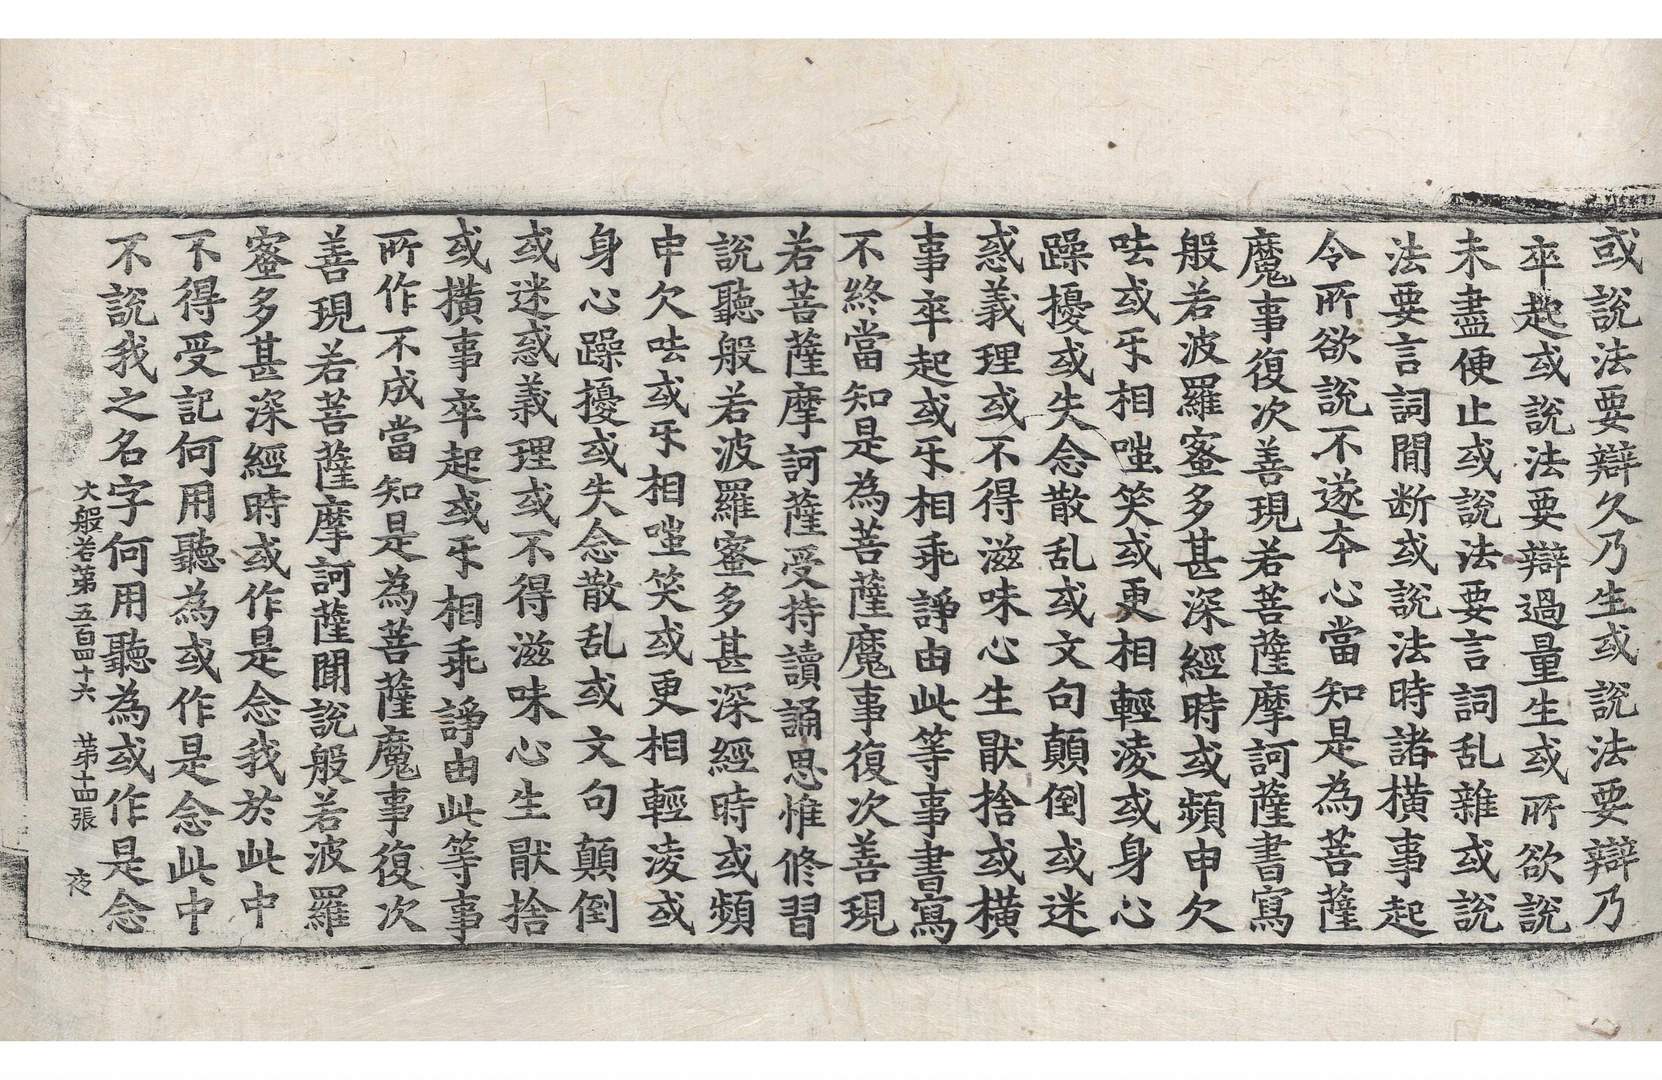 或說法要辯久乃生或說法要辯乃
卒起或說法要辯過量生或所欲說
未盡便止或說法要言詞乱雜或說
法要言詞閒断或說法時諸橫事起
令所欲說不遂夲心當知是為菩薩
魔事復次善現若菩薩摩訶薩書寫
般若波羅蜜多甚深經時或頻申欠
呿或㸦相嗤笑或更相輕淩或身心
躁擾或失念散乱或文句顛倒或迷
惑義理或不得滋味心生猒捨或橫
事卒起或㸦相乖諍由此等事書寫
不終當知是為菩薩魔事復次善現
若菩薩摩訶薩受持讀誦思惟修習
說聽般若波羅蜜多甚深經時或頻
申欠呿或㸦相嗤笑或更相輕淩或
身心躁擾或失念散乱或文句顛倒
或迷惑義理或不得滋味心生猒捨
或橫事卒起或㸦相乖諍由此等事
所作不成當知是為菩薩魔事復次
善現若菩薩摩訶薩聞說般若波羅
蜜多甚深經時或作是念我於此中
不得受記何用聽為或作是念此中
不說我之名字何用聽為或作是念
大般若第五百四十六 第十四張 夜